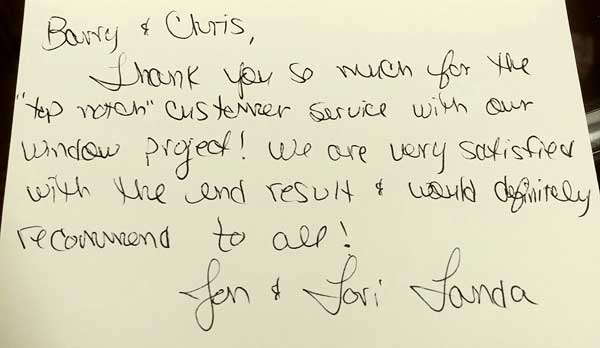 Barry & Chris,
Thank you so much for the
"top notch" customer service with our
window project! We are very satisfied
with the end result & would definitely
recommend to all!
Jen & Lori Landa